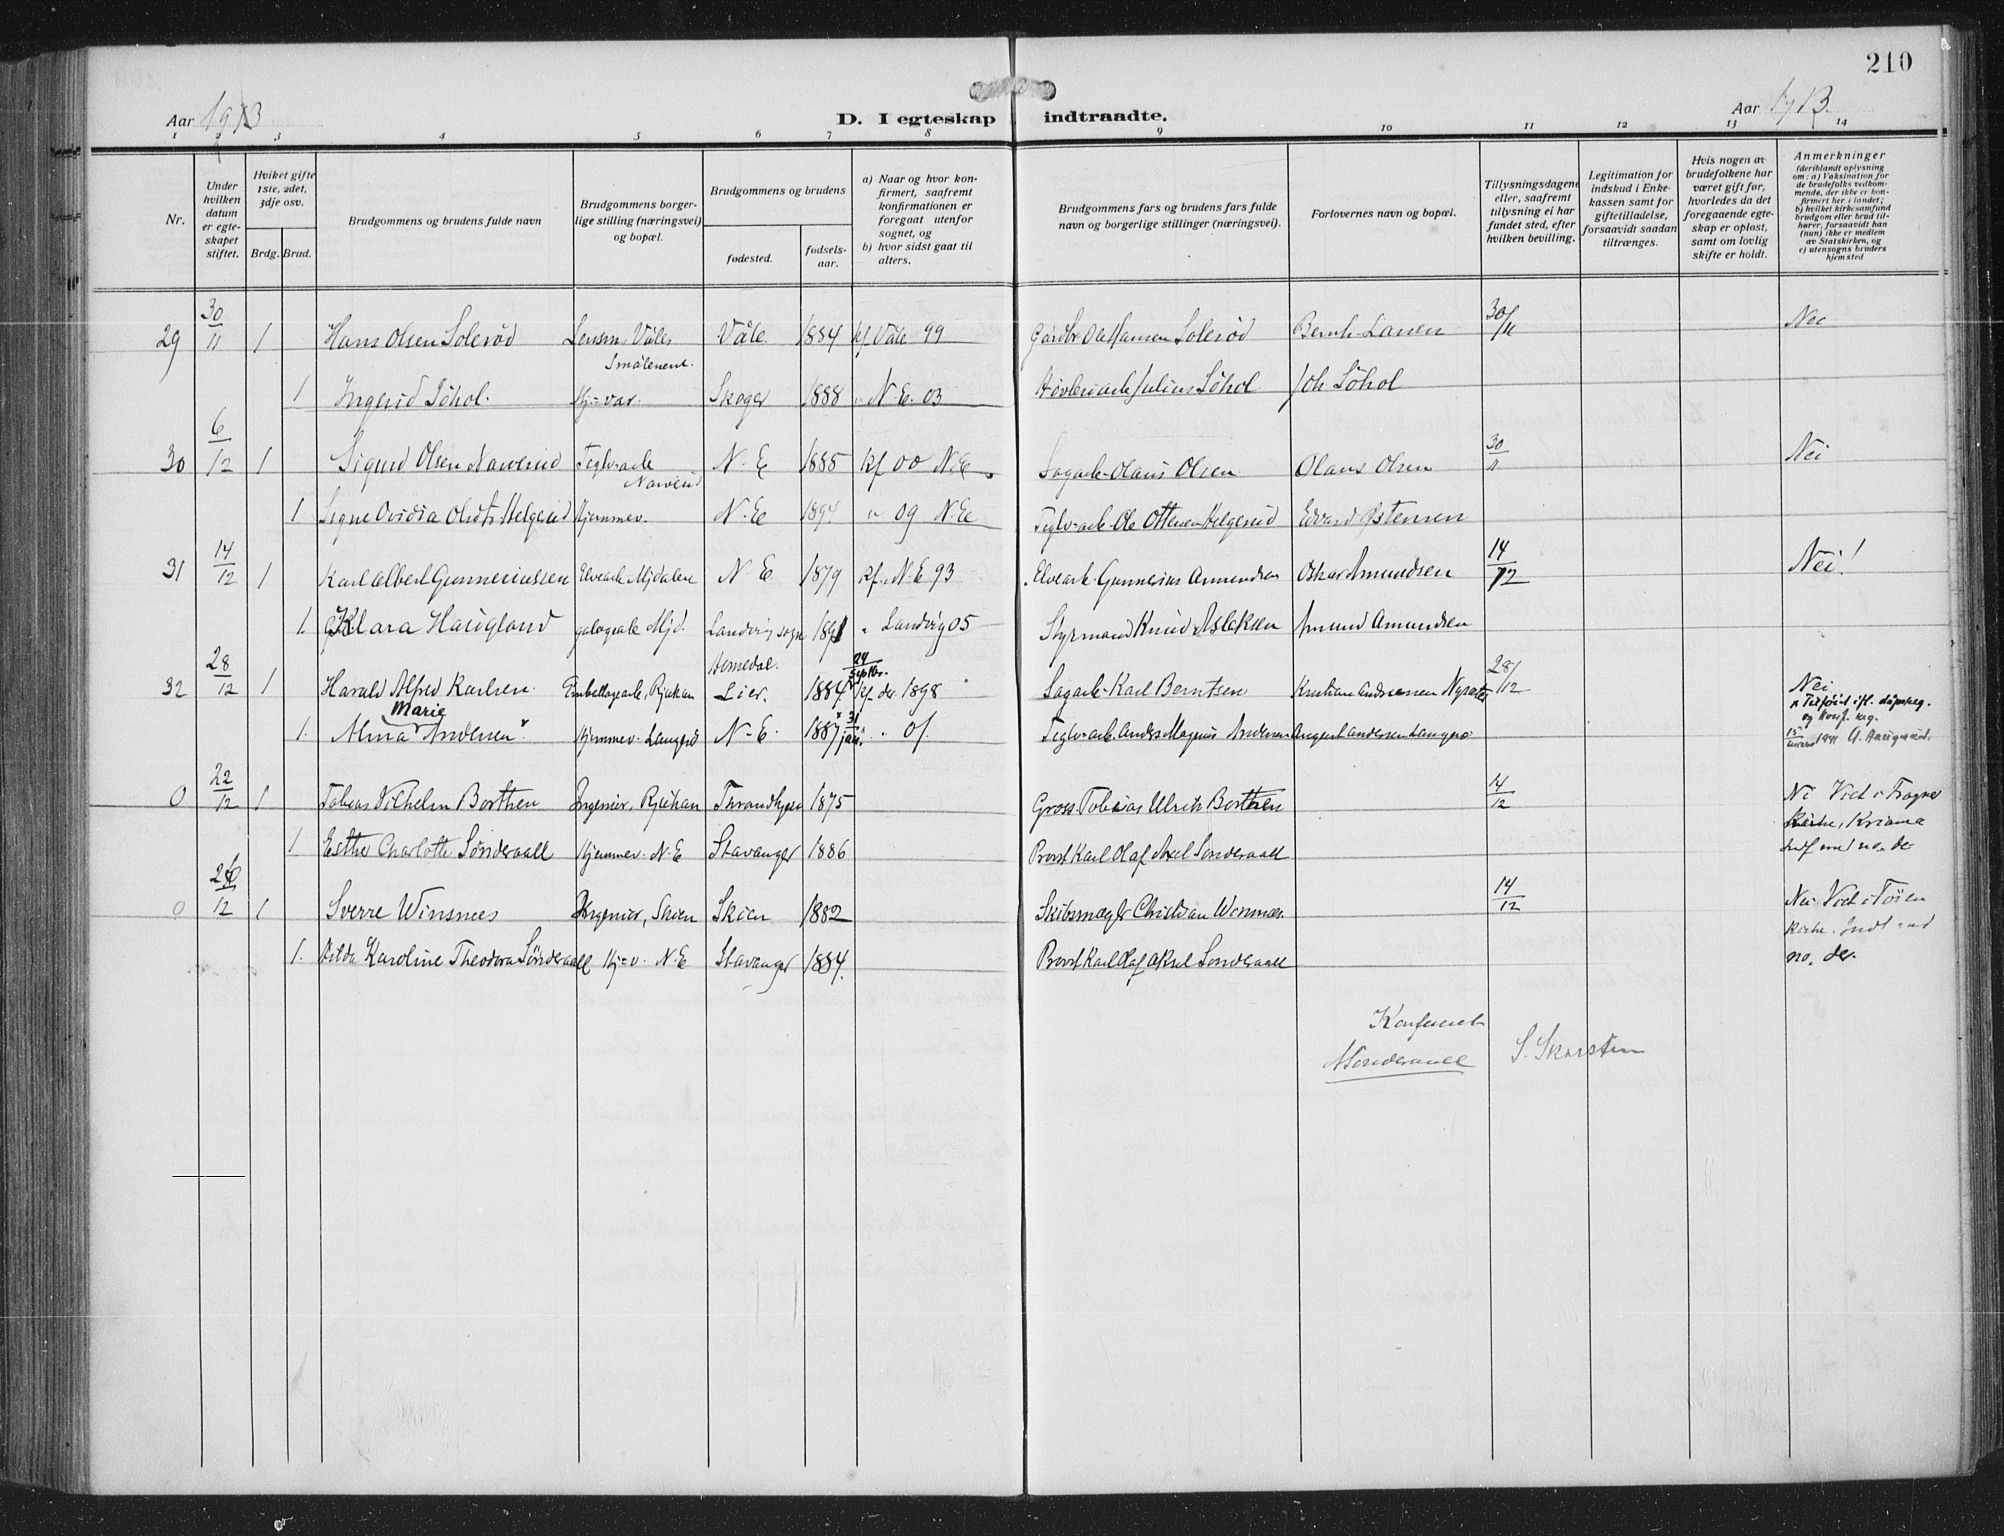 210
Aar 1913
D. I egteskap indtraadte.
Aar 1913.
1 2 3 4 5 6 7 8 9 10 11 12 13 14
Nr.
Under hvilken datum er egteskapet stiftet.
Hviket gifte 1ste, 2det, 3dje osv.
Brdg. Brud.
Brudgommens og brudens fulde navn
Brudgommens borgerlige stilling (næringsvei) og bopæl.
Brudgommens og brudens
fødested.
fødselsaar.
a) Naar og hvor konfirmert, saafremt konfirmationen er foregaat utenfor sognet, og
b) hvor sidst gaat til alters.
Brudgommens fars og brudens fars fulde navn og borgerlige stillinger (næringsvei).
Forlovernes navn og bopæl.
Tillysningsdagene eller, saafremt tilysning ei har fundet sted, efter hvilken bevilling.
Legitimation for indskud i Enkekassen samt for giftetilladelse, forsaavidt saadan tiltrænges.
Hvis nogen av brudefolkene har været gift før, hvorledes da det foregaaende egteskap er opløst, samt om lovlig skifte er holdt.
Anmerkninger (deriblandt oplysning om: a) Vaksination for de brudefolks vedkommende, der ikke er konfirmert her i landet; b) hvilket kirkesamfund brudgom eller brud tilhører, forsaavidt han (hun) ikke er medlem av Statskirken, og c) utensogns bruders hjemsted
29 30/11 1 Hans Olsen Solerød Lensm. Våler Smålenene. Våle. 1884 kf. Våle 99 Gårdbr Ole Hansen Solerød Bernh. Larsen 30/11 Nei
1 Ingerid Søhol. Hj=var. Skoger 1888 " N.E. 03 Høvleriarb Julius Søhol Joh Søhol
30 6/12 1 Sigurd Olsen Narverud Teglv-arb Narverud N-E 1885 kf 00 N.E. Sagarb. Olaus Olsen Olaus Olsen 30/11 Nei
1 Signe Ovidia Olsdtr Helgerud Hjemmev. N-E 1894 " 09 N.E Teglv=arb Ole Ottersen Helgerud Edvard Østensen
31 14/12 1 Karl Albert Gunneriussen Elvearb Mjdalen N-E 1879 kf. N.E 93 Elvearb. Gunnerius Amundsen Oskar Amundsen 14/12 Nei!
1. Klara Haugland Mjd. Landvig sogn 1891 " Landvig 05 Styrmand Knud Aslaksen Amund Amundsen
32 28/12 1 Harald Alfred Karlsen. Emballagearb, Rjukan Lier. 1884 24 septbr. kf. der 1898 Sagarb. Karl Berntsen Kristian Andreassen 28/12 Nei
1. Alma Marie Andersen Hjemmev. Langerd N-E. 1887 31 jan. " 01. Teglv=arb Anders Magnus Andersen August Andersen x Tilføiet ifl. dåpsreg. og konf. reg. 15/ 1941
0 22/12 1 Tobias Vilhelm Borthen Ingeniør, Rjukan Throndhjem 1875 Gross. Tobias Ulrik Borthen 14/12 Nei Viet i Frogner kirke, Kriania Indf. med no. der
1 Esther Charlotte Sønderaall Hjemmev. N.E Stavanger 1886 Provst Karl Olaf Axel Sønderaall
0 /12 1 Sverre Winsnes Ingeniør, Skien Skien 1882 Skibsmægler Christian Winsnes. 14/12 Nei. Viet i Tøien kirke. Indf. no. der.
1. Karoline Theodora Sønderaall Hj=v. N.E Stavanger 1884. Provst Karl Olaf Aksel Sønderaall
Konfereret
Sønderaall S. Skarstein